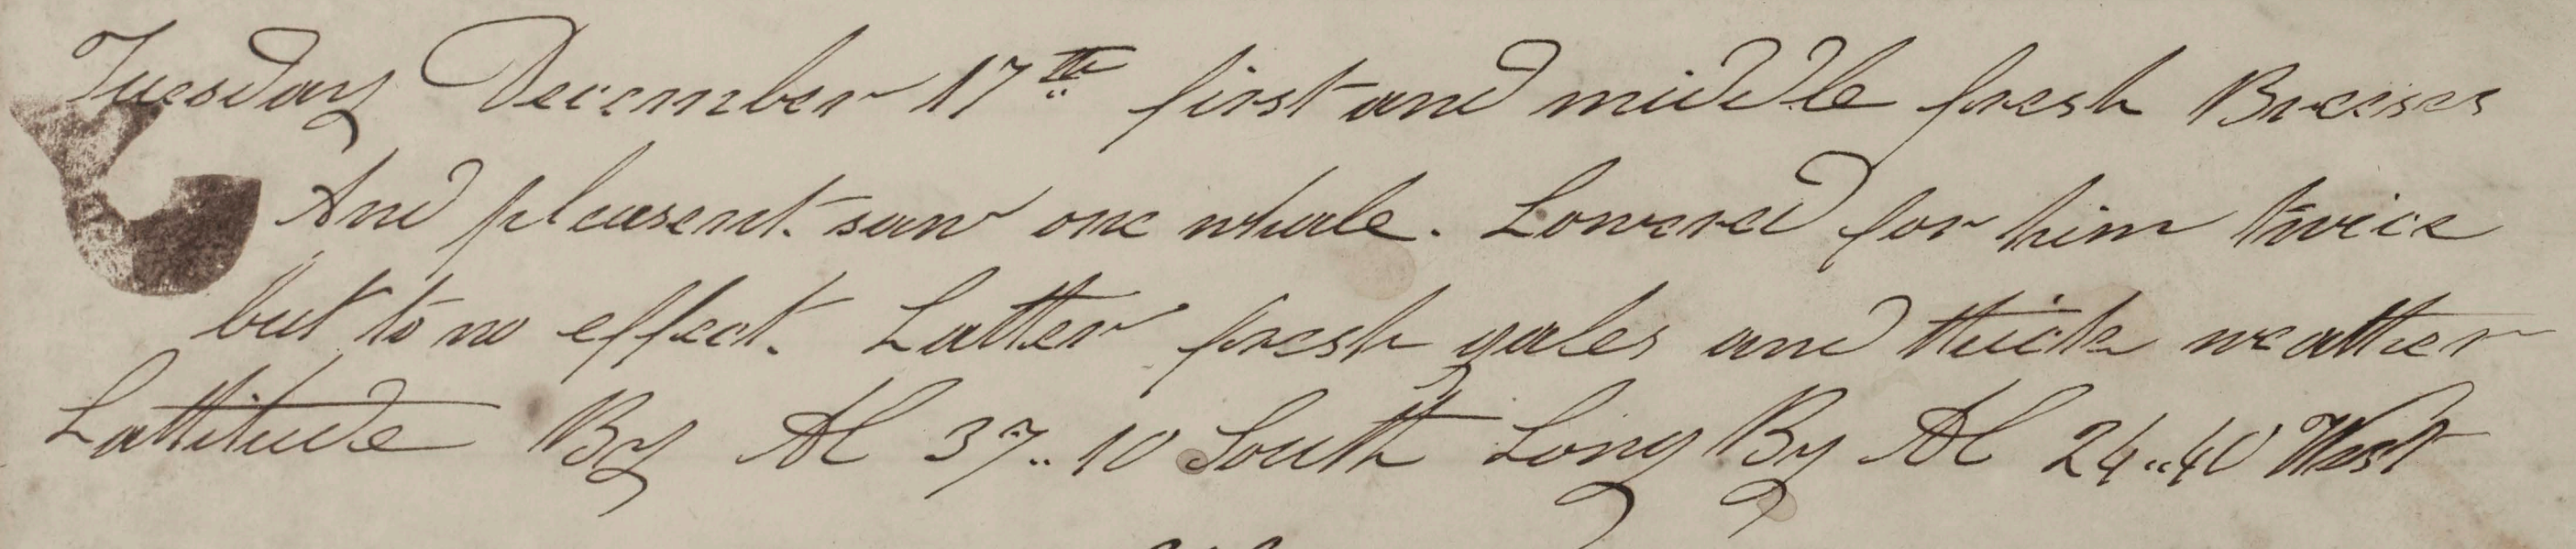 Tuesday December 17th first and middle fresh Breeses
And pleasent. saw one whale. Lowered for him twice
but to no effect. Latter fresh gales and thick weather
Lattitude By Ac 37..10 South Long By Ac 24..40 West